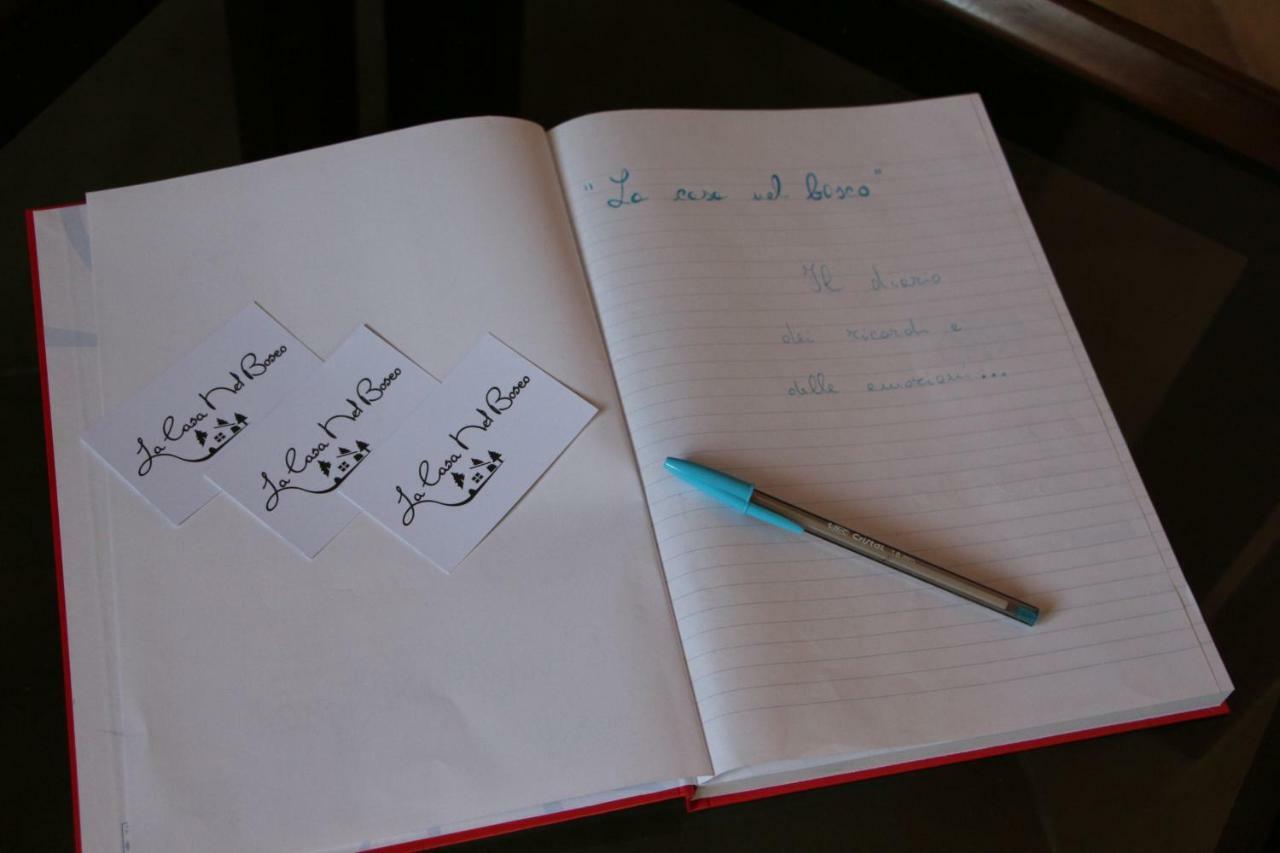 La Casa Nel Bosco
La Casa Nel Bosco
La Casa Nel Bosco
"La casa nel bosco"
Il diario
dei ricordi e
delle emozioni...
BIC Cristal